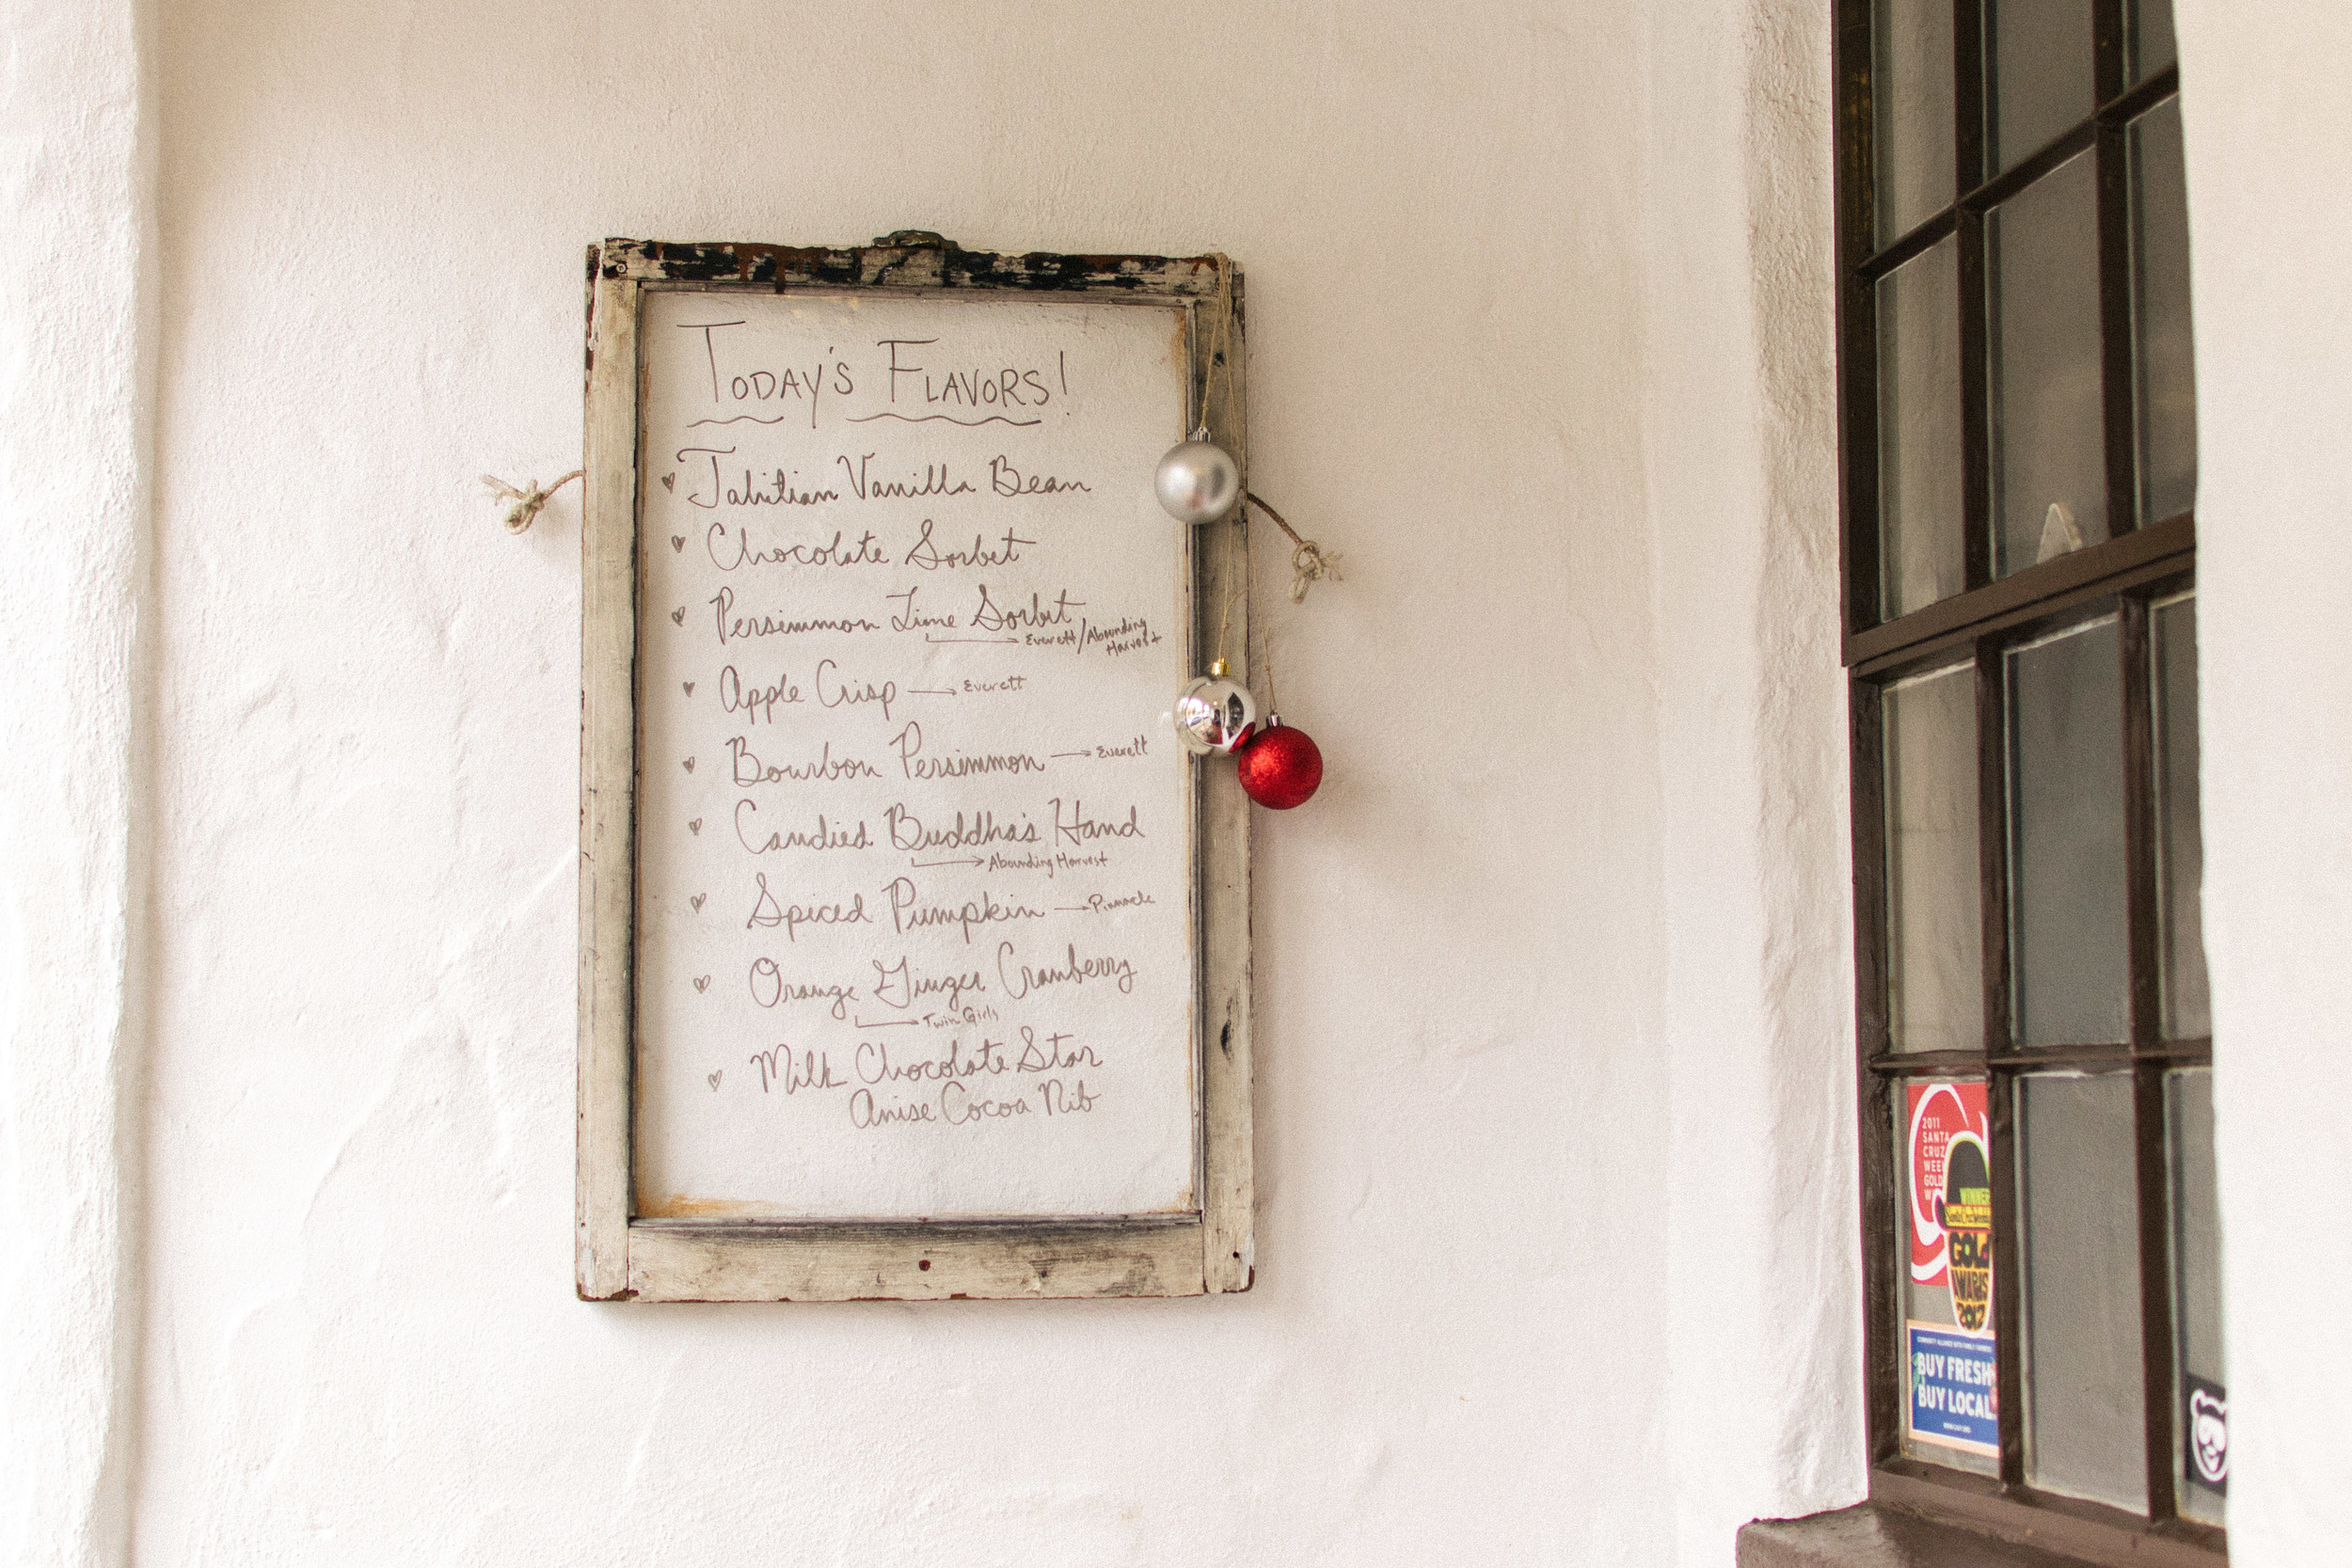 Today's Flavors!
Tahitian Vanilla Bean
Chocolate Sorbet
Persimmon Lime Sorbet
Everett/Abounding
Harvest
Apple Crisp → Everett
Bourbon Persimmon → Everett
Candied Buddha's Hand
→ Abounding Harvest
Spiced Pumpkin → Pinnacle
Orange Ginger Cranberry
→ Twin Girls
Milk Chocolate Star
Anise Cocoa Nib
2011
SANTA
CRUZ
GOLD
WINNER
GOLD
AWARDS
2012
COMMUNITY ALLIANCE WITH FAMILY FARMERS
BUY FRESH
BUY LOCAL